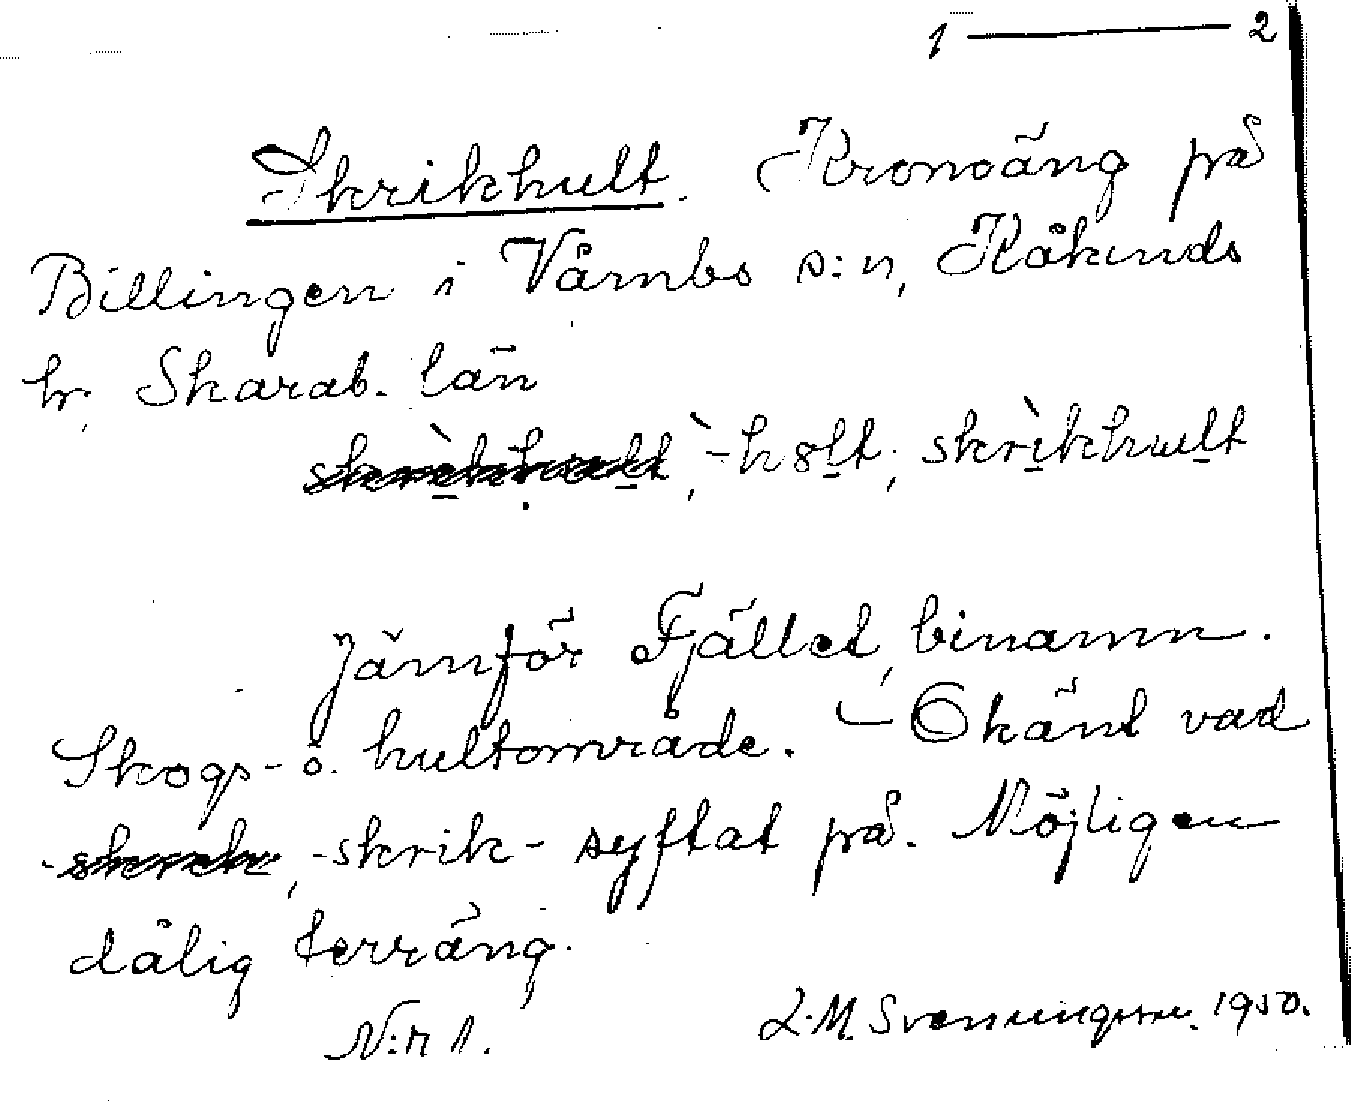 1 — 2
Skrikhult. Kronoäng på
Billingen i Våmbs s:n, Kåkinds
hr, Skarab. län
-hȣlt, skrìkhult
Jämför Fjället, binamn.
Skogs- o. hultområde. — Okänt vad
-skrik- syftat på. Möjligen
dålig terräng.
N:r 1. L.M. Svenungsson. 1950.